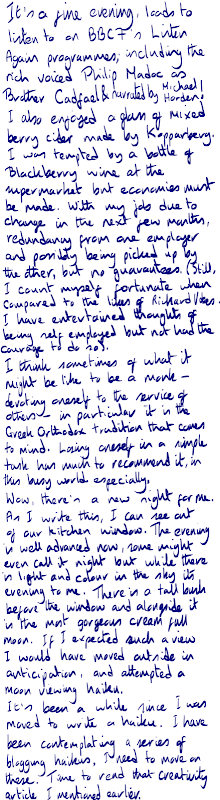 It's a fine evening, loads to
listen to on BBC7's Listen
Again programmes, including the
rich voiced Philip Madoc as
Brother Cadfael & narrated by Michael
Hordern!
I also enjoyed a glass of mixed
berry cider made by Kopparberg.
I was tempted by a bottle of
Blackberry wine at the
supermarket but economies must
be made. With my job due to
change in the next few months,
redundancy from one employer
and possibly being picked up by
the other, but no guarantees. Still,
I count myself fortunate when
compared to the lives of Richard
I have entertained thoughts of
being self employed but not had the
courage to do so.
I think sometimes of what it
might be like to be a monk –
devoting oneself to the service of
others – in particular it is the
Greek Orthodox tradition that comes
to mind. Losing oneself in a simple
task has much to recommend it, in
this busy world especially.
Wow, there's a new sight for me.
As I write this, I can see out
of our kitchen window. The evening
is well advanced now, some might
even call it night but while there
is light and colour in the sky its
evening to me. There is a tall bush
before the window and alongside it
is the most gorgeous cream full
moon. If I expected such a view
I would have moved outside in
anticipation, and attempted a
moon viewing haiku.
It's been a while since I was
moved to write a haiku. I have
been contemplating a series of
blogging haikus, I need to move on
these. Time to read that creativity
article I mentioned earlier.